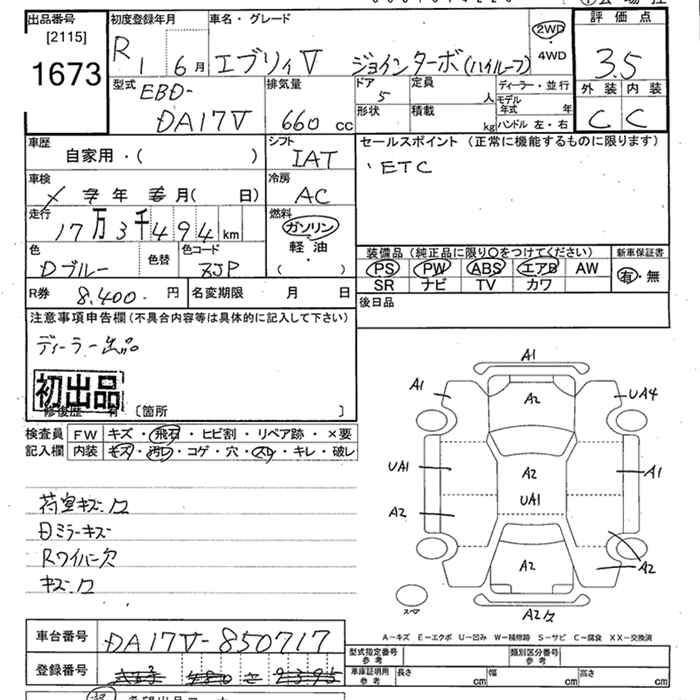 出品番号
[2115]
1673
初度登録年月
R1 6月
車名・グレード
エブリィV ジョインターボ(ハイルーフ)
2WD
4WD
評価点
3.5
外装 内装
C C
型式
EBD-
DA17V
排気量
660 cc
ドア
5
定員
人
形状
積載
kg
ディーラー・並行
モデル年式 年
ハンドル 左・右
車歴
自家用・( )
シフト
IAT
セールスポイント (正常に機能するものに限ります)
・ETC
車検
年 月( 日)
冷房
AC
走行
17万3千494km
燃料
ガソリン
軽油
( )
色
Dブルー
色替
色コード
ZJP
装備品(純正品に限り○をつけてください)
新車保証書
PS PW ABS エアB AW
SR ナビ TV カワ
有・無
R券 8,400.円
名変期限 月 日
後日品
注意事項申告欄(不具合内容等は具体的に記入して下さい)
ディーラー出品
初出品
修復歴 有 [箇所 ]
検査員記入欄
FW キズ・飛石・ヒビ割・リペア跡・×要
内装 キズ・汚レ・コゲ・穴・スレ・キレ・破レ
荷室キズ・凹
日ミラーキズ
Rワイパー欠
キズ・凹
A1
A1 A2 UA4
UA1 A2 A1
A2 UA1
A2 A2
スペア
A2凹
A-キズ E-エクボ U-凹み W-補修跡 S-サビ C-腐食 XX-交換済
車台番号
DA17V-850717
登録番号
型式指定番号 参考
類別区分番号 参考
車庫証明用 参考
長さ cm 幅 cm 高さ cm